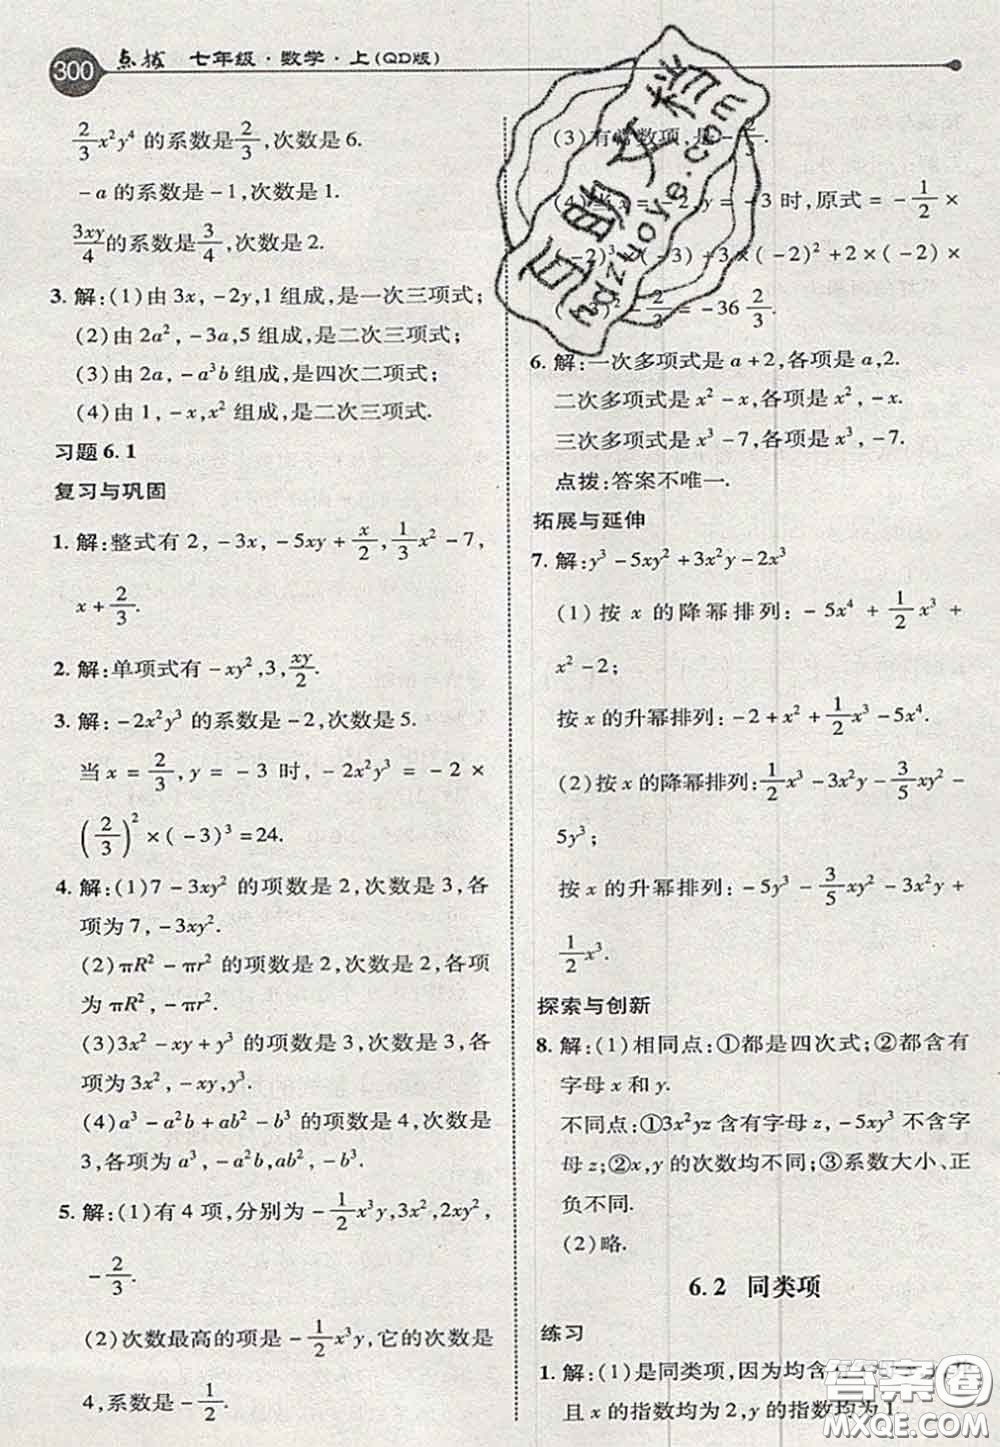 300 点拨 七年级·数学·上(QD版)
2/3 x²y⁴ 的系数是 2/3,次数是 6.
-a 的系数是 -1,次数是 1.
3xy/4 的系数是 3/4,次数是 2.
3. 解:(1)由 3x, -2y,1 组成,是一次三项式;
(2)由 2a², -3a,5 组成,是二次三项式;
(3)由 2a, -a³b 组成,是四次二项式;
(4)由 1, -x,x² 组成,是二次三项式.
习题 6.1
复习与巩固
1. 解:整式有 2, -3x, -5xy + x/2, 1/3 x² - 7,
x + 2/3.
2. 解:单项式有 -xy²,3, xy/2.
3. 解: -2x²y³ 的系数是 -2,次数是 5.
当 x = 2/3, y = -3 时, -2x²y³ = -2 ×
(2/3)² × (-3)³ = 24.
4. 解:(1)7 - 3xy² 的项数是 2,次数是 3,各
项为 7, -3xy².
(2)πR² - πr² 的项数是 2,次数是 2,各项
为 πR², -πr².
(3)3x² - xy + y³ 的项数是 3,次数是 3,各
项为 3x², -xy,y³.
(4)a³ - a²b + ab² - b³ 的项数是 4,次数是
3,各项为 a³, -a²b,ab², -b³.
5. 解:(1)有 4 项,分别为 -1/2 x³y,3x²,2xy²,
-2/3.
(2)次数最高的项是 -1/2 x³y,它的次数是
4,系数是 -1/2.
(3)有常数项,是 - /3.
(4)当 x = -2,y = -3 时,原式 = -1/2 ×
(-2)³ × (-3) + 3 × (-2)² + 2 × (-2) ×
(-3)² - 2/3 = -36 2/3.
6. 解:一次多项式是 a + 2,各项是 a,2.
二次多项式是 x² - x,各项是 x², -x.
三次多项式是 x³ - 7,各项是 x³, -7.
点拨:答案不唯一.
拓展与延伸
7. 解:y³ - 5xy² + 3x²y - 2x³
(1)按 x 的降幂排列: -5x⁴ + 1/2 x³ +
x² - 2;
按 x 的升幂排列: -2 + x² + 1/2 x³ - 5x⁴.
(2)按 x 的降幂排列: 1/2 x³ - 3x²y - 3/5 xy² -
5y³;
按 x 的升幂排列: -5y³ - 3/5 xy² - 3x²y +
1/2 x³.
探索与创新
8. 解:(1)相同点:①都是四次式;②都含有
字母 x 和 y.
不同点:①3x²yz 含有字母 z, -5xy³ 不含字
母 z;②x,y 的次数均不同;③系数大小、正
负不同.
(2)略.
6.2 同类项
练习
1. 解:(1)是同类项,因为均含有
且 x 的指数均为 2,y 的指数均为 1.
百助文档
答案圈
MXQE.COM